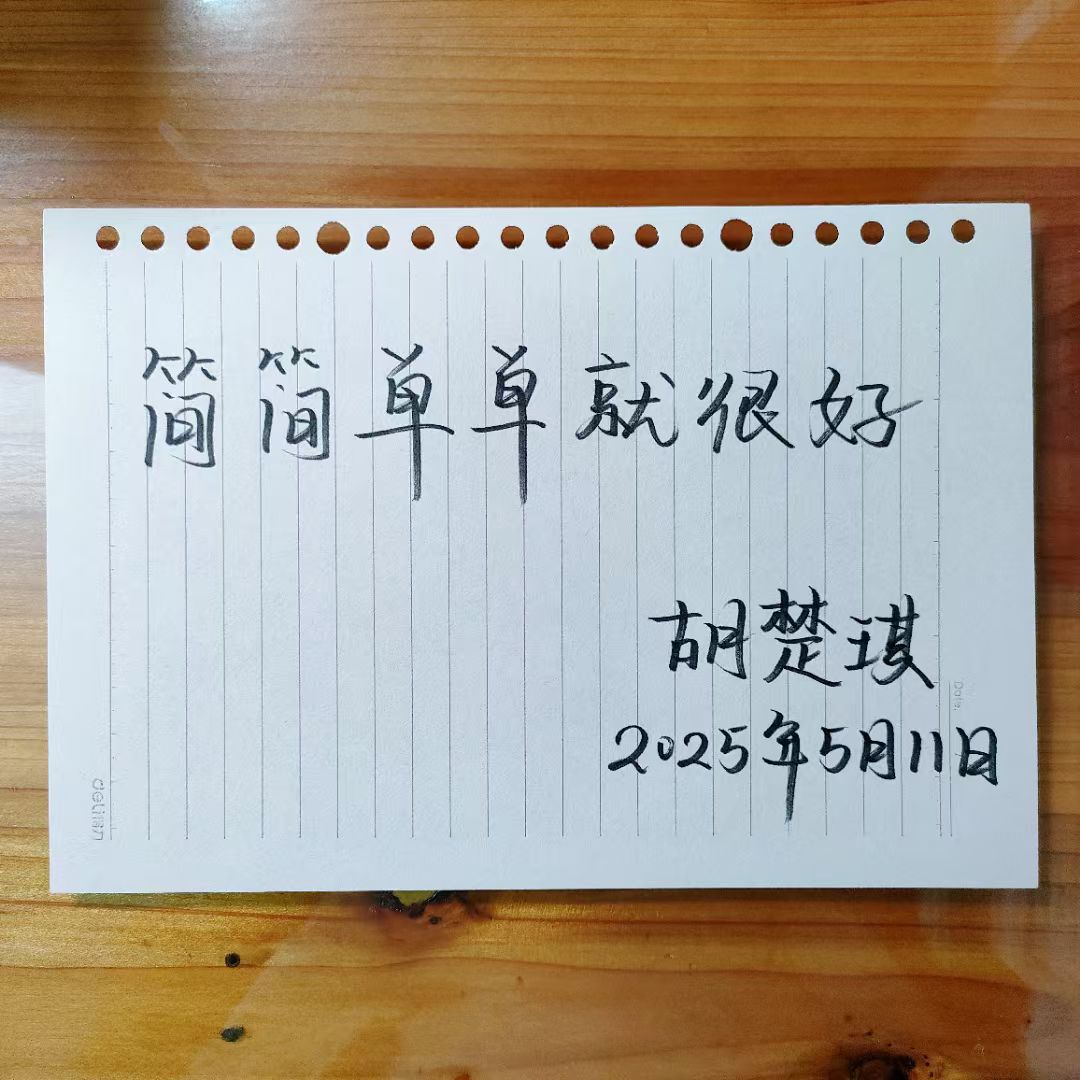 简简单单就很好
胡楚琪
2025年5月11日
Date.